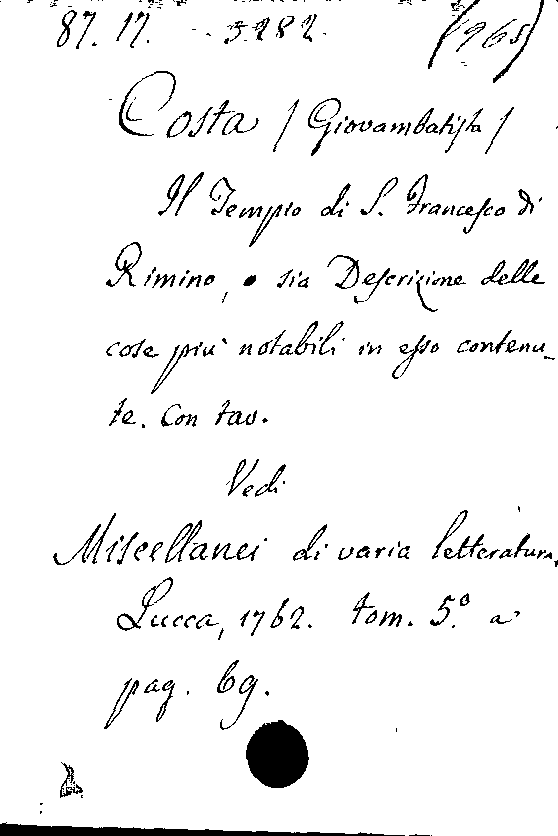 87. 17. - 3282. (965)
Costa / Giovambatista /
Il Tempio di S. Francesco di
Rimino, o sia Descrizione delle
cose più notabili in esso contenu-
te. Con tav.
Vedi
Miscellanei di varia letteratura.
Lucca, 1762. tom. 5.º a
pag. 69.